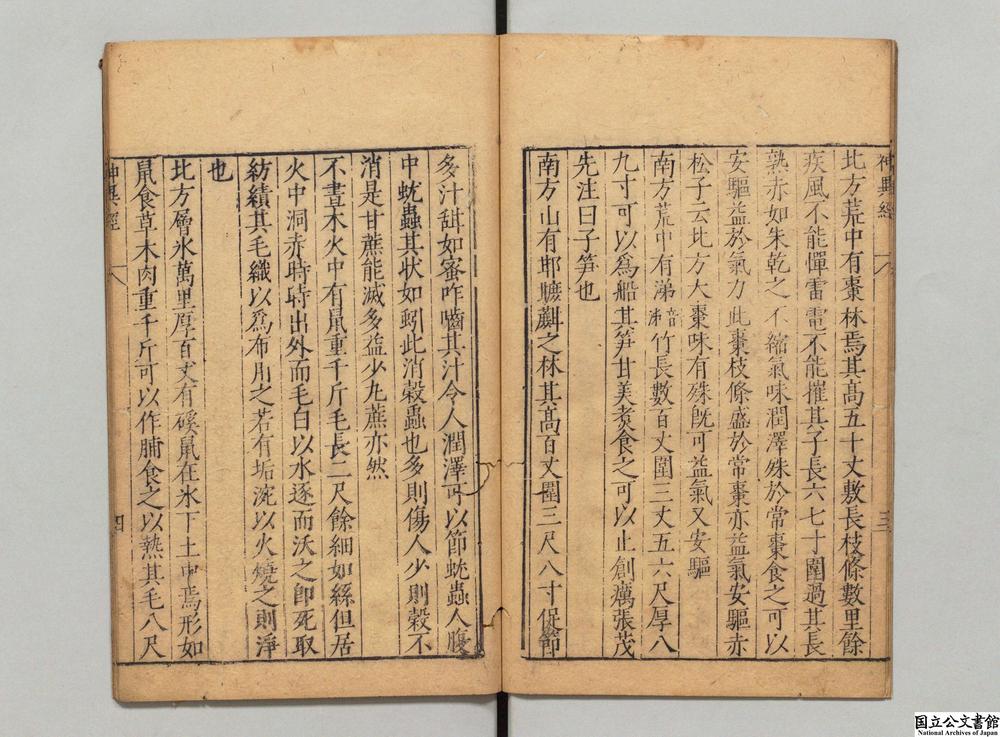 神異經 三
北方荒中有棗林焉其髙五十丈敷長枝條數里餘
疾風不能偃雷電不能摧其子長六七寸圍過其長
熟赤如朱乾之不縮氣味潤澤殊於常棗食之可以
安驅益於氣力此棗枝條盛於常棗亦益氣安驅赤
松子云北方大棗味有殊旣可益氣又安驅
南方荒中有涕音㳍竹長數百丈圍三丈五六尺厚八
九寸可以爲船其笋甘美煑食之可以止創癘張茂
先注曰子笋也
南方山有邯𦼮之林其髙百丈圍三尺八寸促節
多汁甜如蜜咋嚙其汁令人潤澤可以節蚘蟲人腹
中蚘蟲其状如蚓此消穀蟲也多則傷人少則穀不
消是甘蔗能滅多益少凢蔗亦然
不晝木火中有鼠重千斤毛長二尺餘細如絲但居
火中洞赤時時出外而毛白以水逐而沃之卽死取
紡績其毛織以爲布用之若有垢涴以火燒之則淨
也
北方層氷萬里厚百丈有磎鼠在氷下土中焉形如
鼠食草木肉重千斤可以作脯食之以熱其毛八尺
神異經 四
国立公文書館
National Archives of Japan